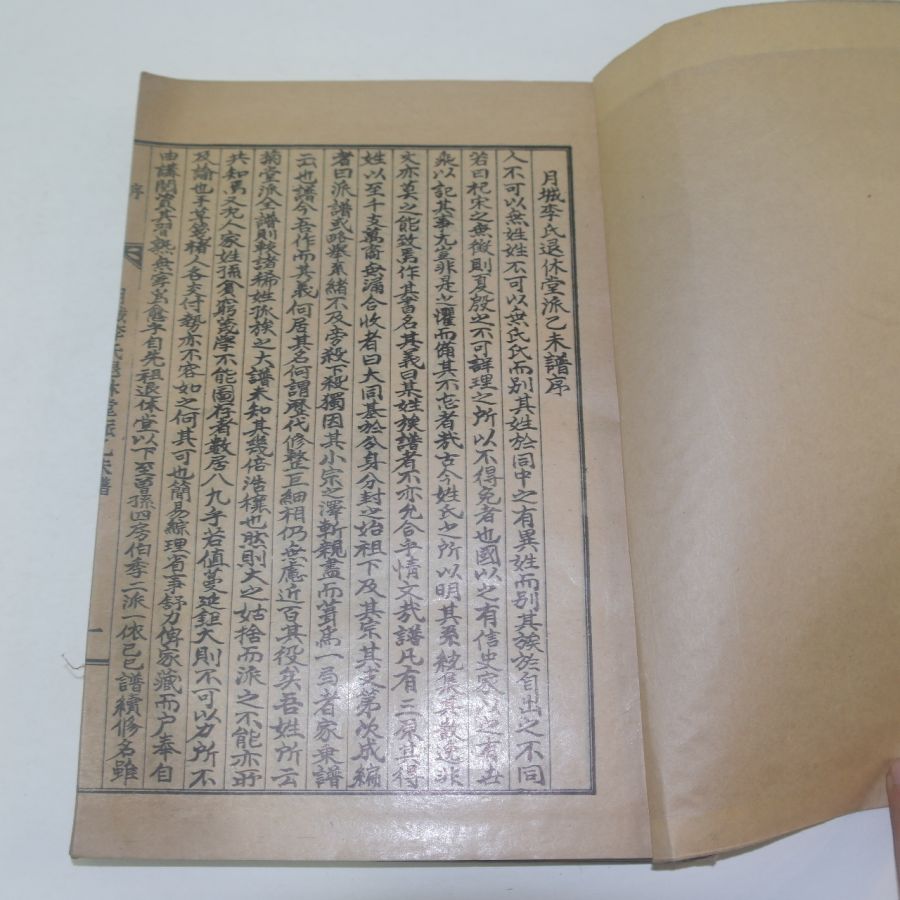 月城李氏退休堂派乙未譜序
人不可以無姓姓不可以無氏氏而別其姓於同中之有異姓而別其族於自出之不同
若曰杞宋之無徵則夏殷之不可詳理之所以不得免者也國以之有信史家以之有世
乘以記其事尤豈非是之懼而備其不忘者哉古今姓氏之所以明其系統集其散逸非
文亦莫之能致焉作其書名其義曰某姓族譜者不亦允合乎情文哉譜凡有三原其得
姓以至千支萬裔無漏合收者曰大同基於分身分封之始祖下及其宗其支第次成編
者曰派譜或略擧系緖不及旁殺下殺獨因其小宗之澤斬親盡而葺爲一局者家乘譜
云也譜今吾作而其義何居其名何謂歷代修整巨細相仍無慮近百其役矣吾姓所云
菊堂派全譜則較諸稀姓孤族之大譜未知其幾倍浩穰也然則大之姑捨而派之不能亦所
共知焉又况人家姓孫貧窮蔑學不能圖存者數居八九乎若値蔓延鉅大則不可以力所不
及諭也乎尊慕楮人各支付勢亦不容如之何其可也簡易綜理省事舒力俾家藏而户奉自
由講閱實其習熟無害爲愈乎自先祖退休堂以下至曾孫四房伯季二派一依己巳譜續修名雖
序
月城李氏退休堂派乙未譜
一